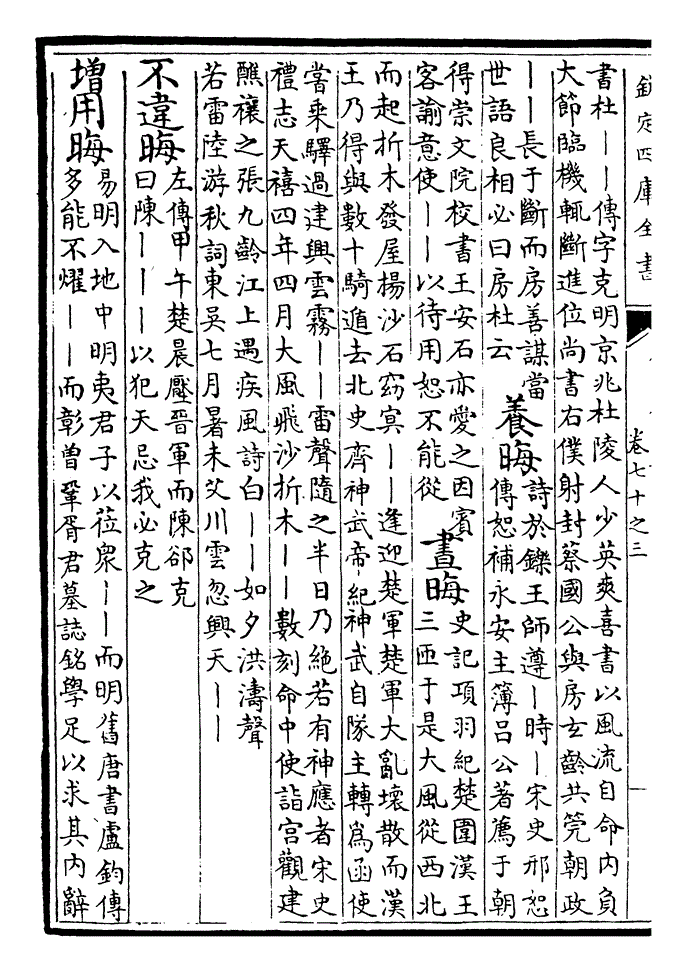 欽定四庫全書
卷七十之三
書杜丨丨傳字克明京兆杜陵人少英爽喜書以風流自命内負
大節臨機輒斷進位尚書右僕射封蔡國公與房玄齡共筦朝政
丨丨長于斷而房善謀當
世語良相必曰房杜云
養晦
詩於鑠王師遵丨時丨宋史邢恕
傳恕補永安主簿吕公著薦于朝
得崇文院校書王安石亦愛之因賔
客諭意使丨丨以待用恕不能從
晝晦
史記項羽紀楚圍漢王
三匝于是大風從西北
而起折木發屋楊沙石窈冥丨丨逢迎楚軍楚軍大亂壞散而漢
王乃得與數十騎遁去北史齊神武帝紀神武自隊主轉爲函使
嘗乗驛過建興雲霧丨丨雷聲隨之半日乃絶若有神應者宋史
禮志天禧四年四月大風飛沙折木丨丨數刻命中使詣宫觀建
醮禳之張九齡江上遇疾風詩白丨丨如夕洪濤聲
若雷陸游秋詞東吳七月暑未艾川雲忽興天丨丨
不違晦
左傳甲午楚晨壓晉軍而陳郤克
曰陳丨丨丨以犯天忌我必克之
増用晦
易明入地中明夷君子以莅衆丨丨而明舊唐書盧鈞傳
多能不耀丨丨而彰曾鞏胥君墓誌銘學足以求其内辭